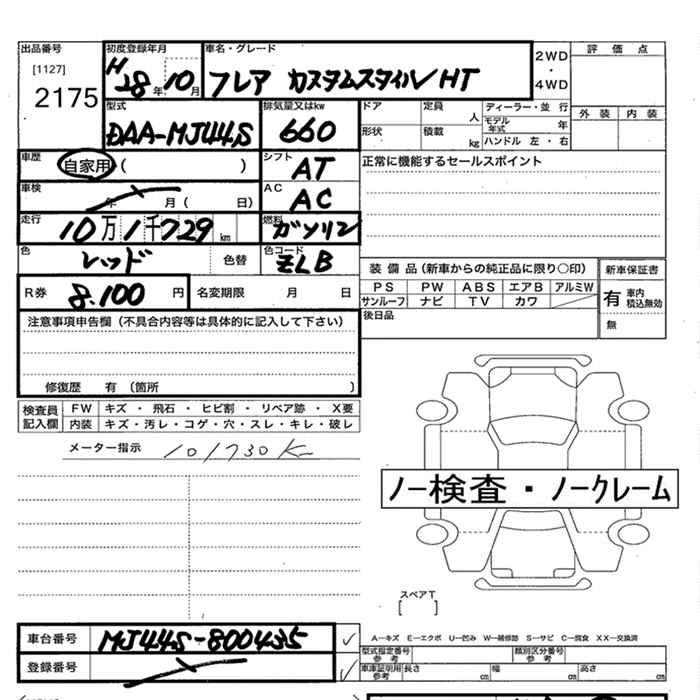 出品番号 初度登録年月 車名・グレード 2WD・4WD 評価点
[1127] 2175 H28年10月 フレア カスタムスタイル HT
外装 内装
型式 排気量又はkw ドア 定員 人 ディーラー・並行
DAA-MJ44S 660 形状 積載 kg モデル年式 年
ハンドル 左・右
車歴 自家用 ( ) シフト AT 正常に機能するセールスポイント
車検 年 月( 日) AC AC
走行 10万1千729km 燃料 ガソリン
色 レッド 色替 色コード ZLB
装備品(新車からの純正品に限り○印) 新車保証書
R券 8.100円 名変期限 月 日
PS PW ABS エアB アルミW 有 車内積込無効
サンルーフ ナビ TV カワ
後日品 無
注意事項申告欄(不具合内容等は具体的に記入して下さい)
修復歴 有(箇所 )
検査員記入欄 FW キズ・飛石・ヒビ割・リペア跡・X要
内装 キズ・汚レ・コゲ・穴・スレ・キレ・破レ
メーター指示 101730Km
ノー検査・ノークレーム
スペアT
[ ]
車台番号 MJ44S-800435
A-キズ E-エクボ U-凹み W-補修跡 S-サビ C-腐食 XX-交換済
登録番号
型式指定番号 参考 類別区分番号 参考
車庫証明用 参考 長さ cm 幅 cm 高さ cm